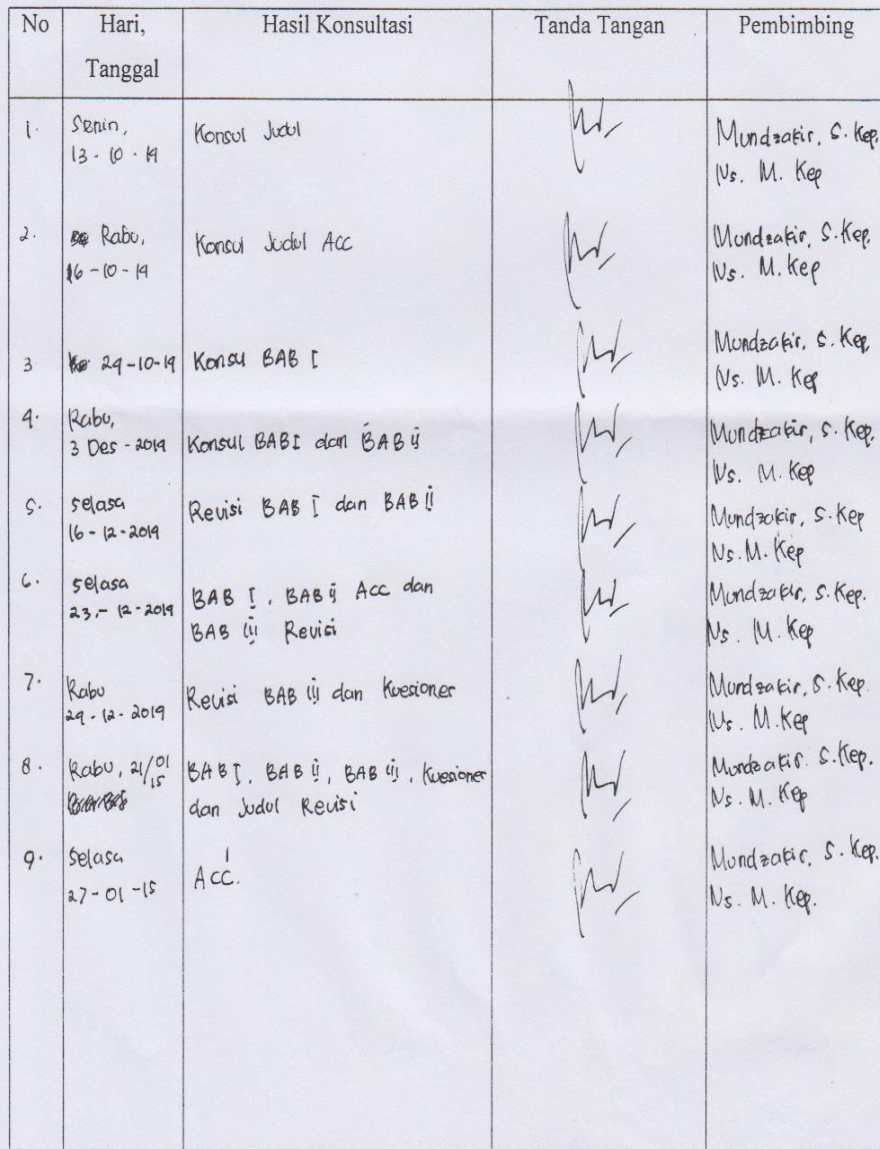 No
Hari,
Tanggal
Hasil Konsultasi
Tanda Tangan
Pembimbing
1.
Senin,
13 - 10 - 14
Konsul Judul
Mundzakir, S. Kep.
Ns. M. Kep
2.
Rabu,
16 - 10 - 14
Konsul Judul Acc
Mundzakir, S. Kep.
Ns. M. Kep
3
24-10-14
Konsul BAB I
Mundzakir, S. Kep,
Ns. M. Kep
4.
Rabu,
3 Des - 2014
Konsul BAB I dan BAB II
Mundzakir, S. Kep,
Ns. M. Kep
5.
Selasa
16 - 12 - 2014
Revisi BAB I dan BAB II
Mundzakir, S. Kep
Ns. M. Kep
6.
Selasa
23 - 12 - 2014
BAB I, BAB II Acc dan
BAB III Revisi
Mundzakir, S. Kep.
Ns. M. Kep
7.
Rabu
24 - 12 - 2014
Revisi BAB III dan Kuesioner
Mundzakir, S. Kep.
Ns. M. Kep
8.
Rabu, 21/01
15
BAB I, BAB II, BAB III, Kuesioner
dan Judul Revisi
Mundzakir. S. Kep.
Ns. M. Kep
9.
Selasa
27 - 01 - 15
Acc.
Mundzakir, S. Kep.
Ns. M. Kep.